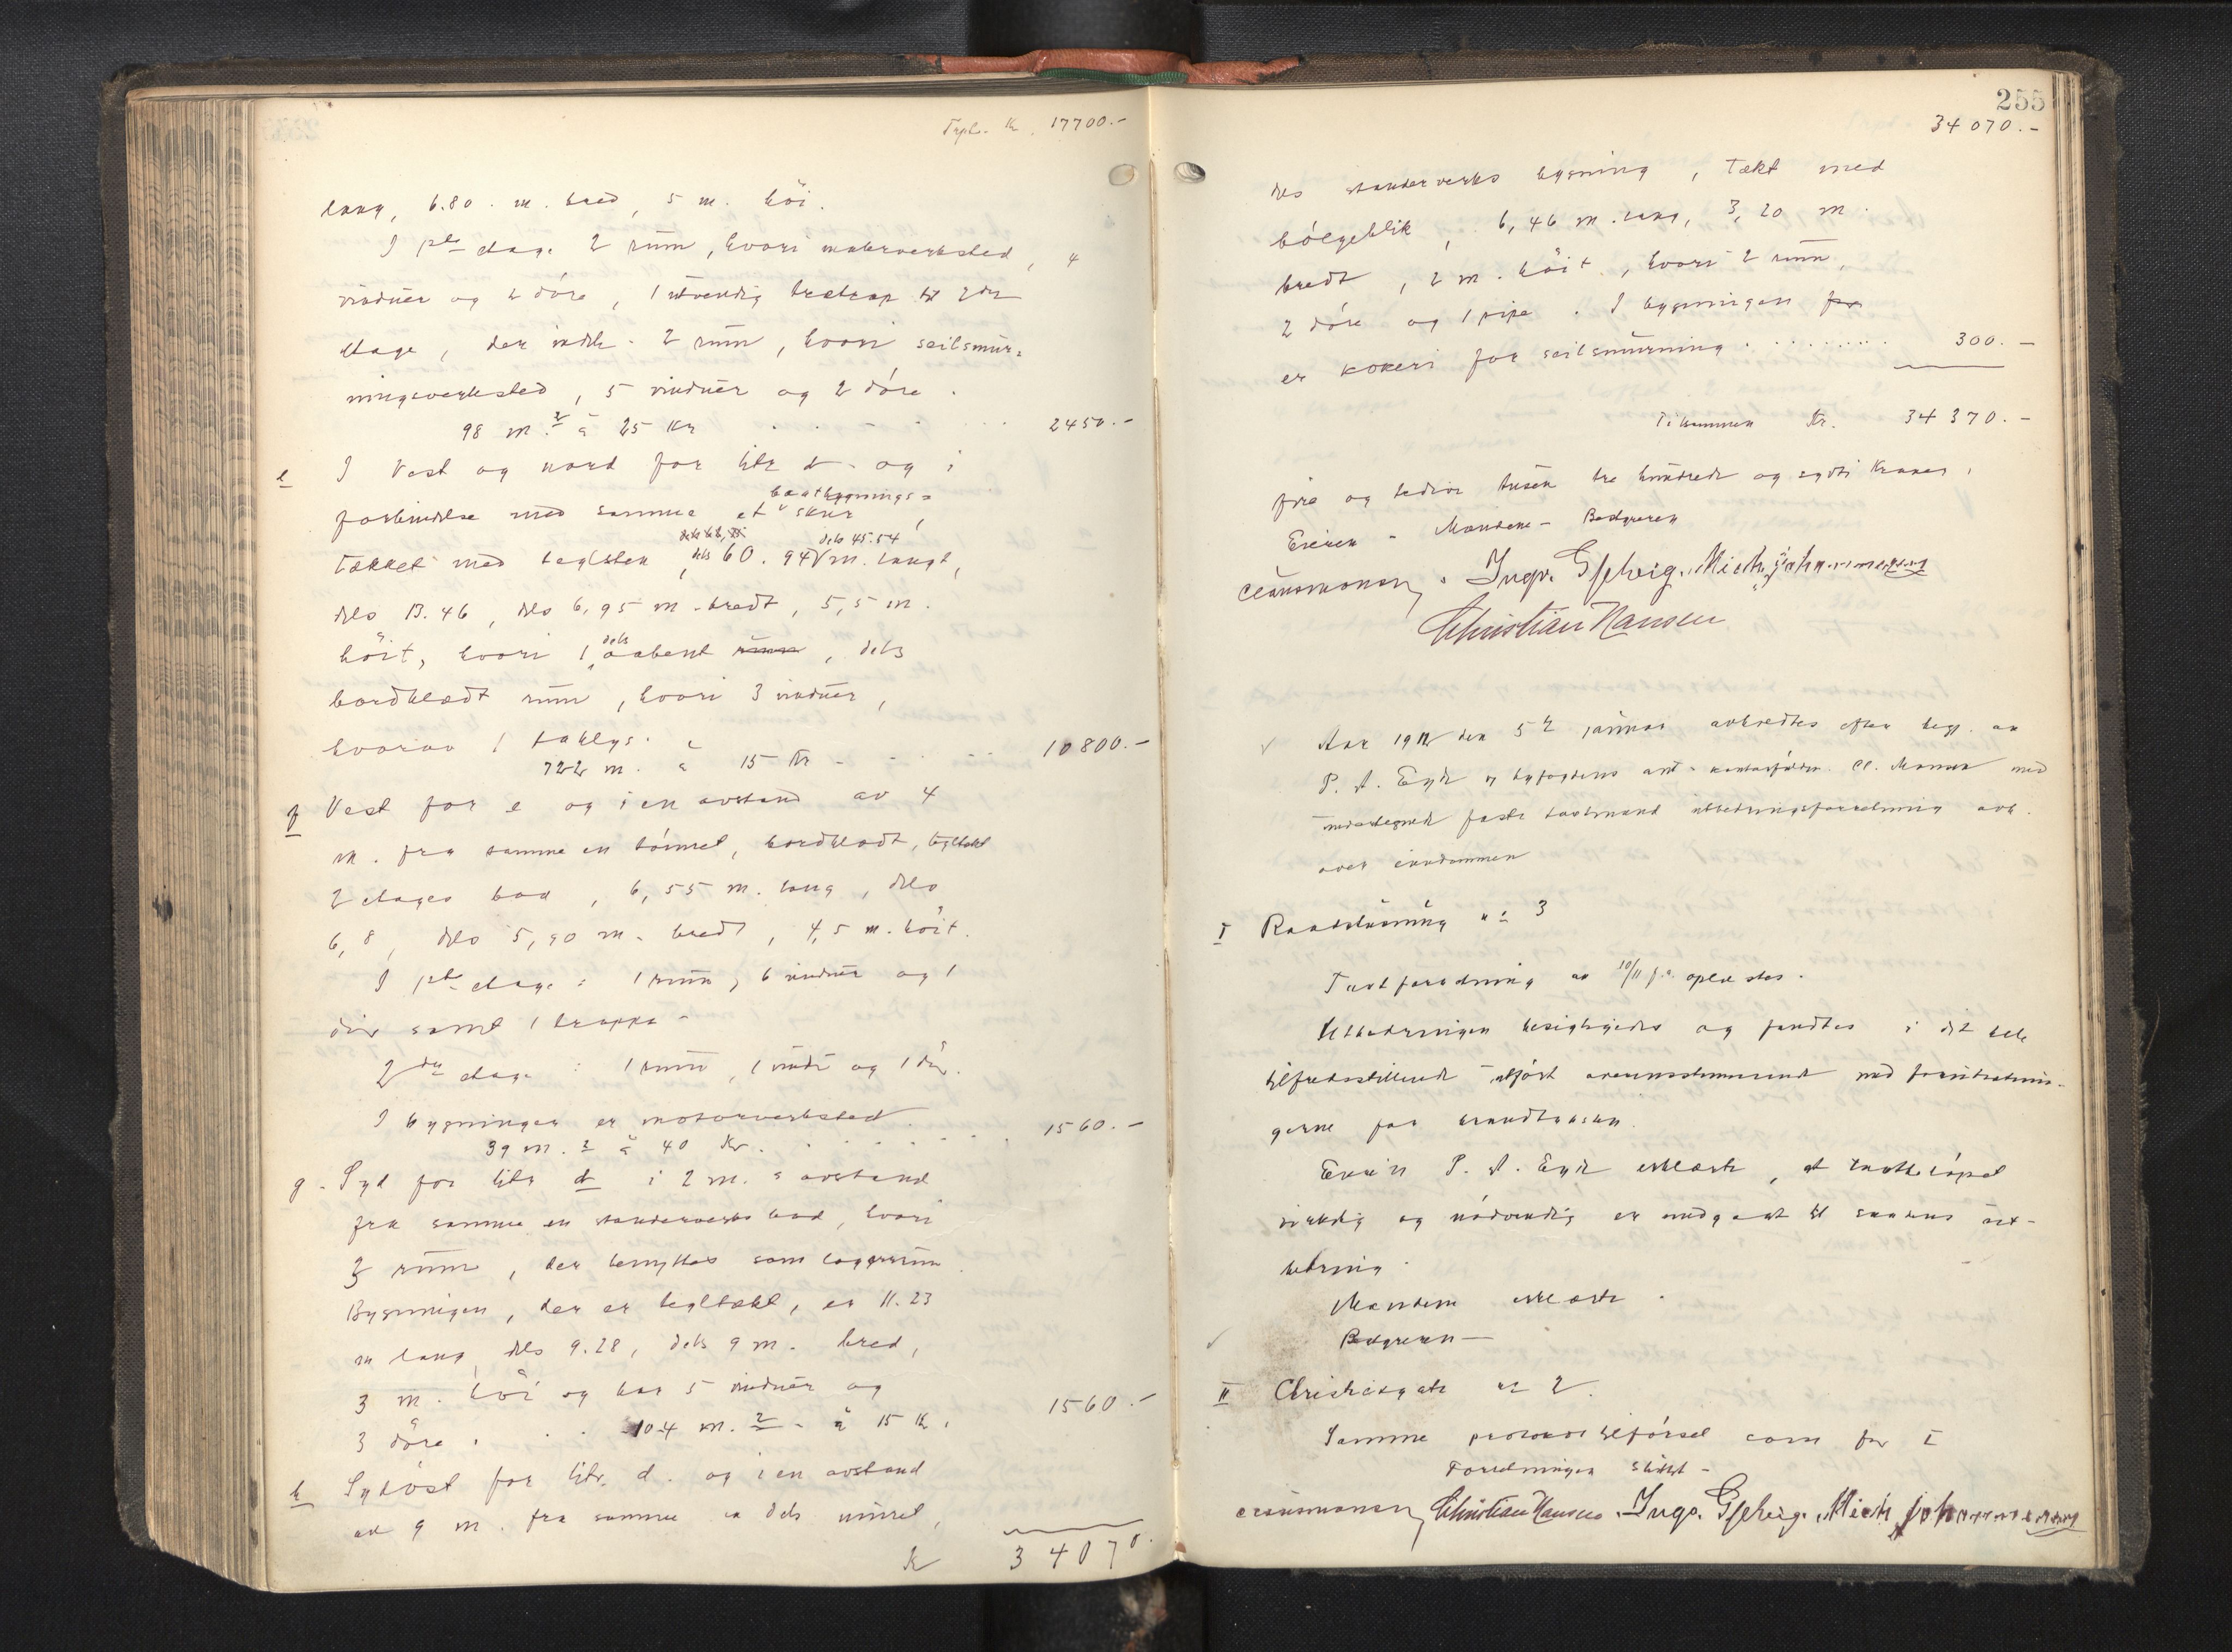 Trpl. Kr. 17700.-
lang, 6.80 m. bred, 5 m. høi.
I 1ste etage 2 rum, hvori malerverksted, 4
vinduer og 2 døre, 1 utvendig trætrap til 2den
etage, der indh. 2 rum, hvori seilsmur=
ningsverksted, 5 vinduer og 2 døre.
98 m.2 à 25 Kr 2450.-
e I Vest og nord for litr d. og i
baatbygnings=
forbindelse med samme et skur,
dels 45.54
tækket med teglsten, dels 60.94 m. langt,
dels 13.46, dels 6,95 m. bredt, 5,5 m.
dels
høit, hvori 1 aabent rum, dels
bordklædt rum, hvori 3 vinduer,
hvorav 1 taklys.
722 m. à 15 Kr 10800.-
f Vest for e og i en avstand av 4
m. fra samme en tømret, bordklædt, tegltækt
2 etages bod, 6,55 m. lang, dels
6,8, dels 5,90 m. bredt, 4,5 m. høit.
I 1ste etage: 1 rum, 6 vinduer og 1
dør samt 1 trappe.
2den etage: 1 rum, 1 vindu og 1 dør.
I bygningen er motorverksted.
39 m.2 à 40 Kr. 1560.-
g. Syd for litr d i 2 m.s avstand
fra samme en standerverks bod, hvori
3 rum, der benyttes som lagerrum.
Bygningen, der er tegltækt, er 11.23
m lang, dels 9.28, dels 9 m. bred,
3 m. høi og har 5 vinduer og
3 døre. 104 m.2 à 15 Kr. 1560.-
h Sydøst for litr. d. og i en avstand
av 9 m. fra samme en dels muret,
Kr 34070.
255
34070.-
dels standerverks bygning, tækt med
bølgeblik, 6,46 m. lang, 3,20 m.
bredt, 2 m. høit, hvori 2 rum,
2 døre og 1 pipe. I bygningen for
er kokeri for seilsmurning 300.-
Tilsammen Kr. 34370.-
fire og tredive tusen tre hundrede og sytti Kroner.
Eieren - Mændene - Bedgreren
Clausmonsen. Ingv. Gjelvig. Mich. Johannesen
Christian Hansen
Aar 1912 den 5te januar avholdtes efter begj. av
P. A. Eyde og byfogdens ant. kontorfuldm. Cl. Monsen med
undertegnede faste takstmænd utbedringsforretning avh.
over eiendommen
I Raadstuesmug no 3
Takstforretning av 10/11 f.a. oplæstes.
Utbedringen besigtigedes og fandtes i det hele
tilfredsstillende utført overensstemmende med forutsætnin-
gerne for brandtaksten.
Eieren P. A. Eyde erklærte, at takstbeløpet
virkelig og nødvendig er medgaat til skadens ut-
bedring.
Mændene erklærte.
Bedgreren -
II Christiesgate no 2.
Samme protokoltilførsel som for I
Forretningen sluttet -
Clausmonsen Christian Hansen. Ingv. Gjelvig. Mich Johannesen